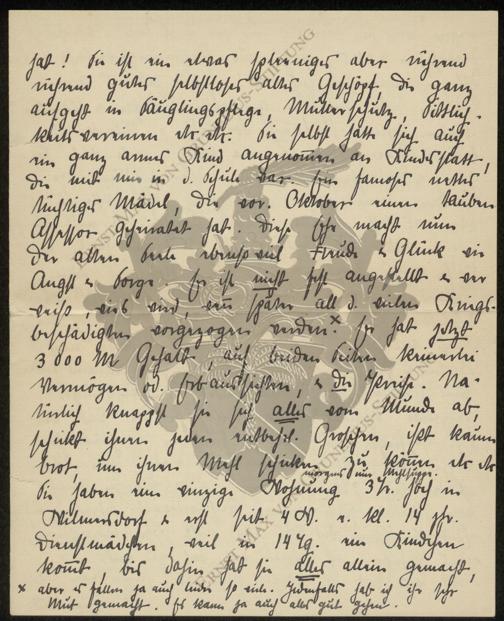 hat! Sie ist ein etwas spleeniges aber rührend
rührend gutes selbstloses altes Geschöpf, die ganz
aufgeht in Säuglingspflege, Mutterschutz, Sittlich-
keitsvereinen etc. etc. Sie selbst hatte sich auch
ein ganz armes Kind angenommen an Kindesstatt,
die mit mir in d. Schule war. Ein famoses nettes
tüchtiges Mädel, die vor. Oktober einen tauben
Assessor geheiratet hat. Diese Ehe macht nun
der alten Seele ebensoviel Freude & Glück wie
Angst & Sorge. Er ist nicht fest angestellt & wer
weiss, wies wird, wenn später all d. vielen Kriegs-
beschädigten vorgezogen werden.× Er hat jetzt
3000 M Gehalt, auf beiden Seiten keinerlei
Vermögen od. Erbaussichten, & die Preise. Na-
türlich knappst sie sich alles vom Munde ab,
schickt ihnen jeden entbehrl. Groschen, isst kaum
Brot, um ihnen Mehl schicken zu können etc etc
morgens nur Mehlsuppe.
Sie haben eine winzige Wohnung 3 Tr. hoch in
Wilmersdorf & erst seit 4 W. e. kl. 14 jhr.
Dienstmädchen, weil in 14 Tg. ein Kindchen
kommt, bis dahin hat sie alles allein gemacht,
× aber es fallen ja auch leider so viele. Jedenfalls hab ich ihr sehr
Mut gemacht. Es kann ja auch alles gut gehen.
ERNST MAX VON GRUNELIUS-STIFTUNG
ERNST MAX VON GRUNELIUS-STIFTUNG